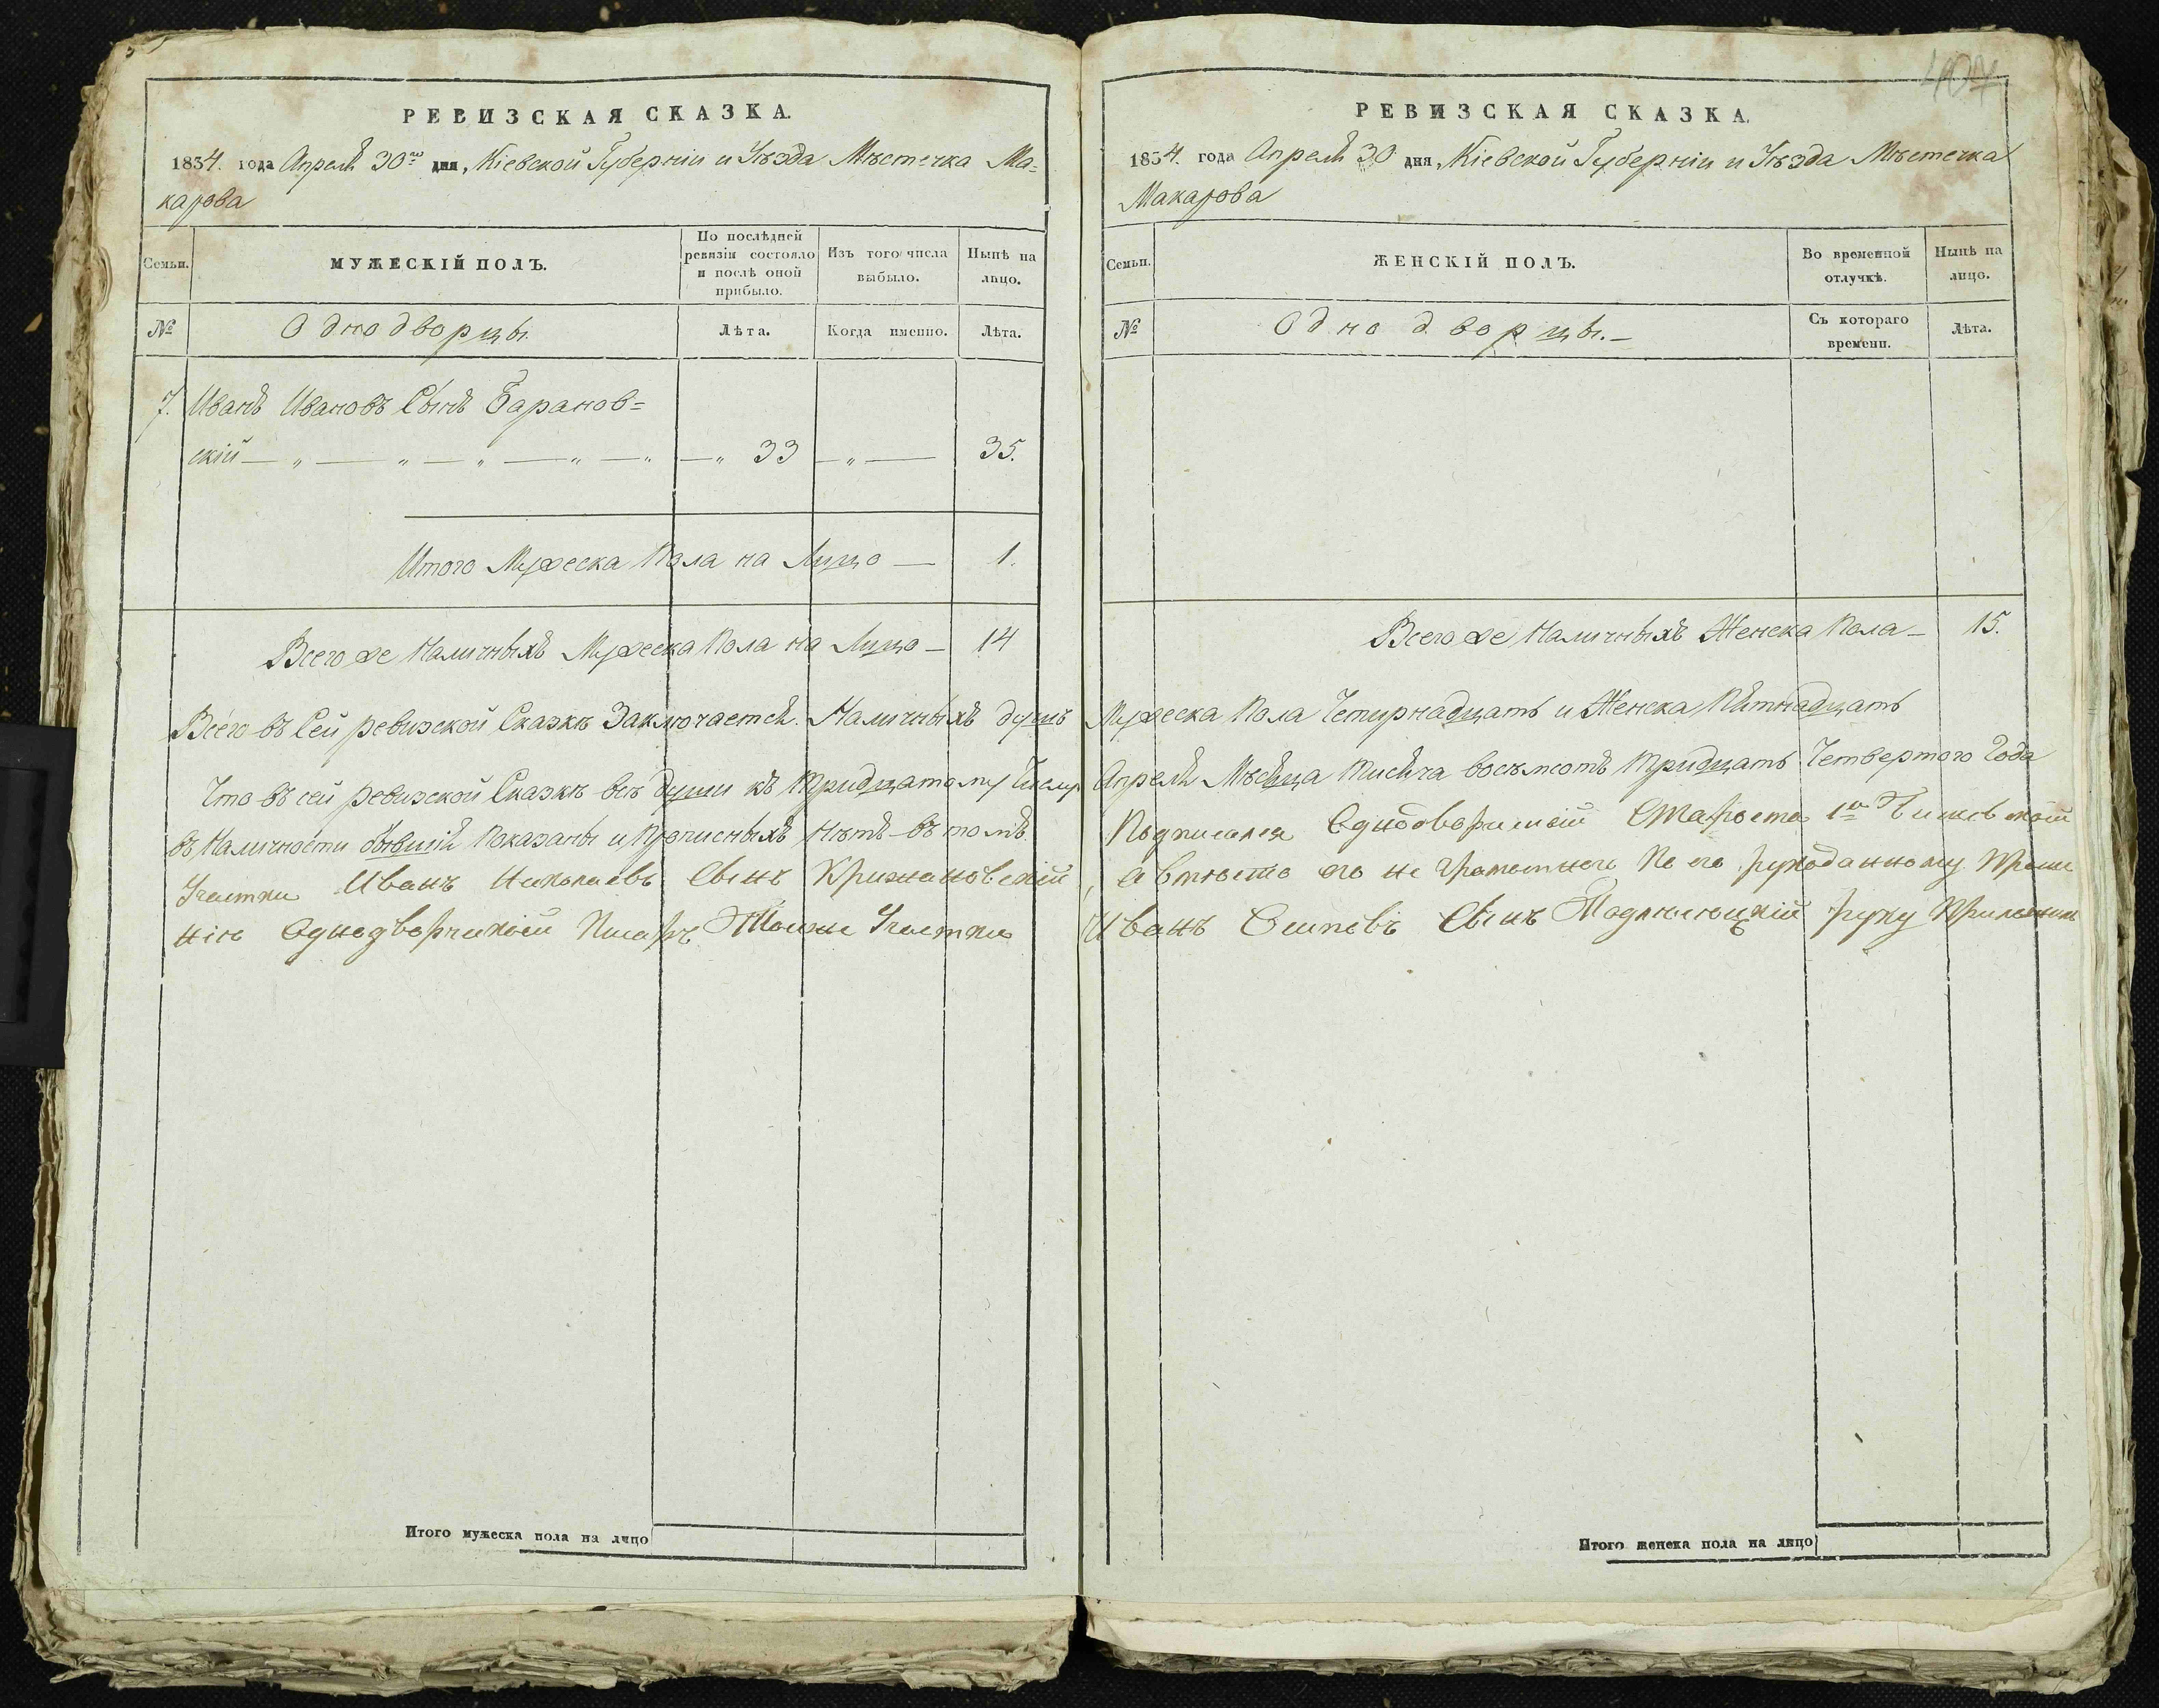 РЕВИЗСКАЯ СКАЗКА.
1834. года Апреля 30го дня, Кіевской Губерніи и Уѣзда Мѣстечка Ма-
карова
Семьи.
МУЖЕСКІЙ ПОЛЪ.
По послѣдней
ревизіи состояло
и послѣ оной
прибыло.
Изъ того числа
выбыло.
Нынѣ на
лицо.
№
Однодворцы.
Лѣта.
Когда именно.
Лѣта.
7. Иванъ Ивановъ Сынъ Баранов=
скій — „ — „ — „ — „ — „ — „ 33 — „ — 35.
Итого Мужеска Пола на Лицо — 1.
Всего же Наличныхъ Мужеска Пола на Лицо — 14
Всего въ Сей ревизской Сказкѣ Заключается. Наличныхъ душъ
Что въ сей ревизской Сказкѣ всѣ души къ тридцатому Числу
въ Наличности бывшія показаны и прописныхъ нѣтъ въ томъ
Участка Иванъ Николаевъ Сынъ Крижановский
ніе Однодворческій Писарь Участка
Итого мужеска пола на лицо
РЕВИЗСКАЯ СКАЗКА.
1834. года Апреля 30 дня, Кіевской Губерніи и Уѣзда Мѣстечка
Макарова
Семьи.
ЖЕНСКІЙ ПОЛЪ.
Во временной
отлучкѣ.
Нынѣ на
лицо.
№
Однодворцы.—
Съ котораго
времени.
Лѣта.
Всего же Наличныхъ Женска Пола — 15.
Мужеска Пола Четырнадцать и Женска Пятнадцать
Апреля Мѣсяца тисяча восъмсотъ тридцать Четвертого Года
Подписался Однодворческій Староста 1го
а вмѣсто его не грамотнего По его рукоданному Проше
Иванъ Осиповъ Сынъ руку Приложилъ
Итого женска пола на лицо